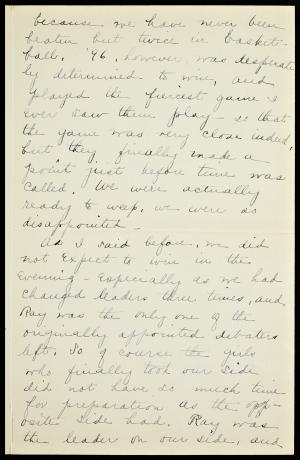 because we have never been
beaten but twice in basket-
ball. '96, however, was desperate-
ly determined to win, and
played the fiercest game I
ever saw them play - so that
the game was very close indeed,
but they finally made a
point just before time was
called. We were actually
ready to weep, we were so
disappointed -
As I said before, we did
not expect to win in the
evening - especially as we had
changed leaders three times, and
Ray was the only one of the
originally appointed debaters
left. So of course the girls
who finally took our side
did not have so much time
for preparation as the opp-
osite side had. Ray was
the leader on our side, and